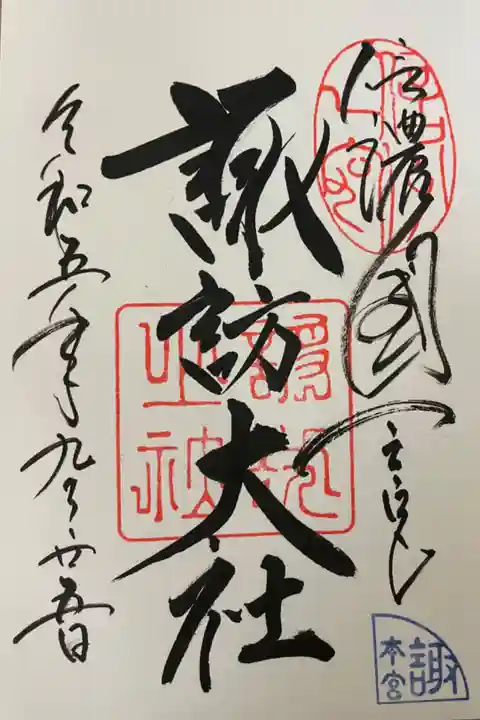 信濃國一之宮
諏訪大社
令和五年九月廿五日
諏訪
之神
諏
本宮